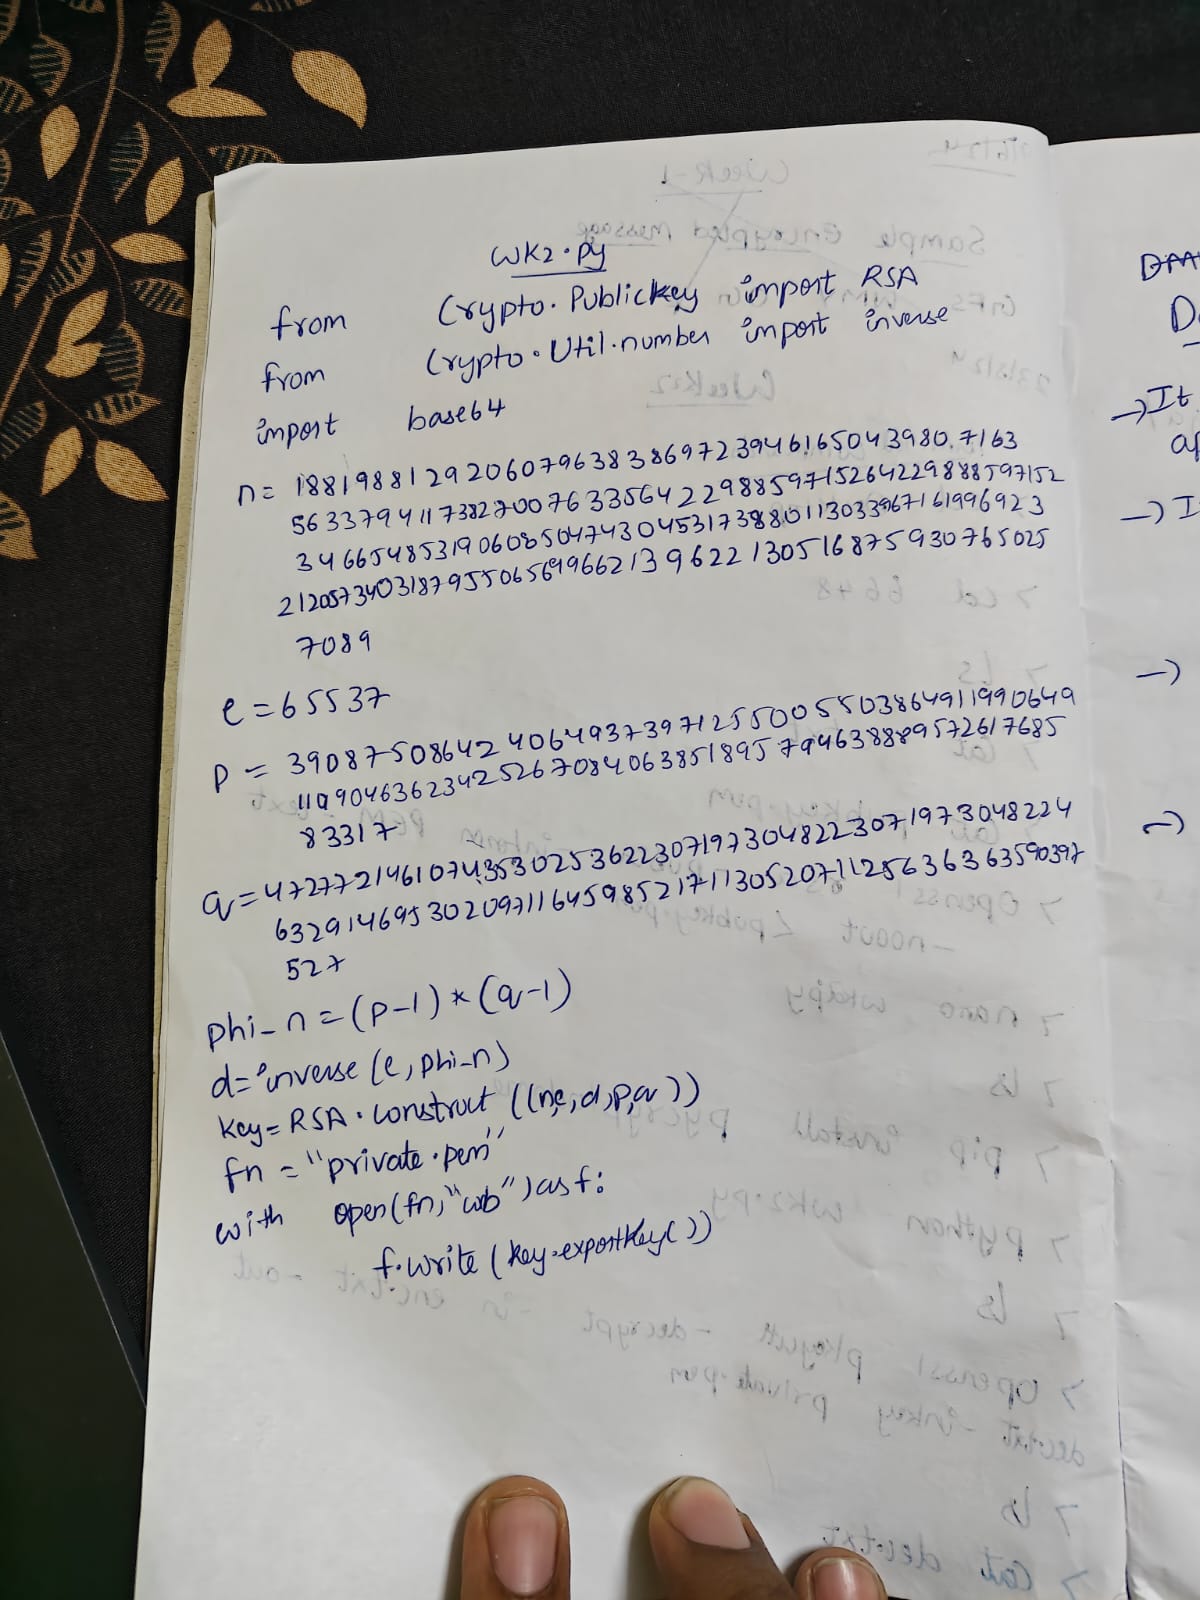 wk2.py
from Crypto.Publickey import RSA
from Crypto.Util.number import inverse
import base64
n= 188198812920607963838697239461650439807163
5633794117382700763356422988597152642298885 97152
3466548531906085047430453173880113033967161996923
2120573403187955065699662139622130516875930765025
7089
e=65537
p = 3908750864240649373971255005503864911990649
11090463623425267084063851895794638889572617685
83317
q=472772146107435302536223071973048223071973048224
6329146953020971164598521711305207112563636359 0397
527
phi_n=(p-1)*(q-1)
d=inverse(e,phi_n)
key=RSA.construct((n,e,d,p,q))
fn="private.pem"
with open(fn,"wb")as f:
f.write(key.exportKey())
DAA
D
→It
ap
→I
→
→